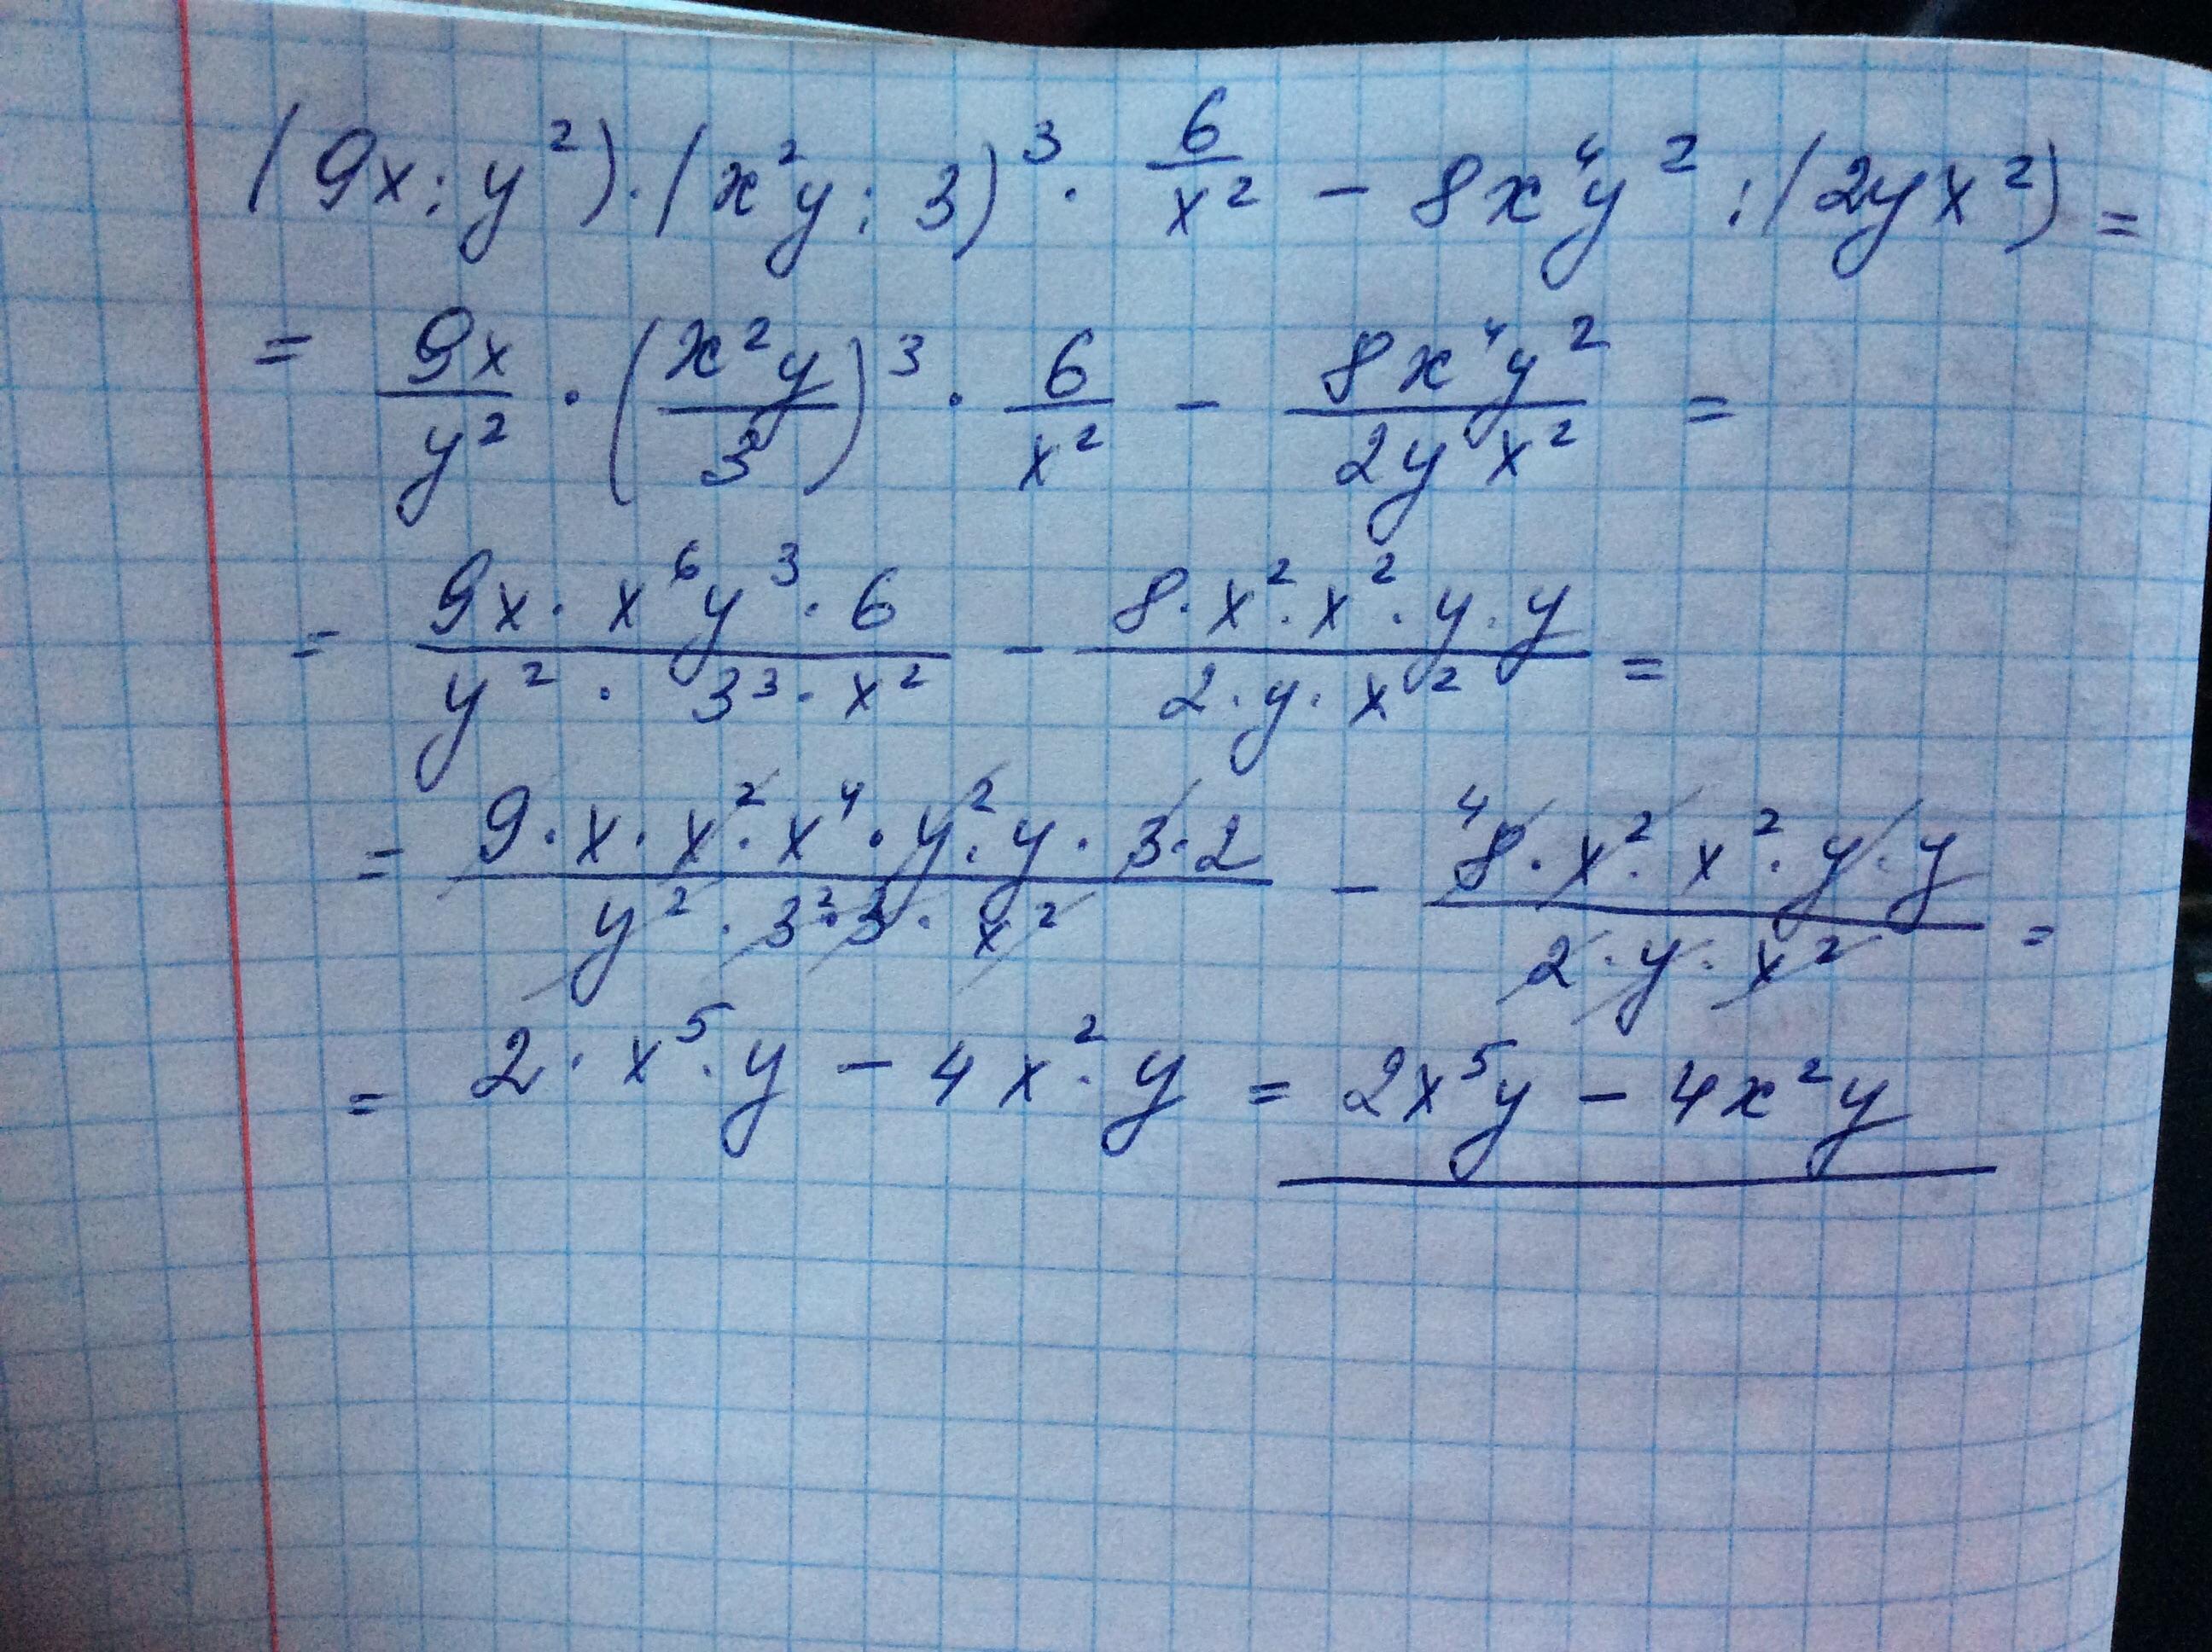 (9x : y²) · (x²y : 3)³ · 6/x² - 8x⁴y² : (2yx²) =
= 9x/y² · (x²y/3)³ · 6/x² - 8x⁴y²/2yx² =
= 9x · x⁶y³ · 6/y² · 3³ · x² - 8 · x² · x² · y · y/2 · y · x² =
= 9 · x · x² · x⁴ · y² · y · 3 · 2/y² · 3² · 3 · x² - ⁴8 · x² · x² · y · y/2 · y · x² =
= 2 · x⁵ · y - 4x² · y = 2x⁵y - 4x²y